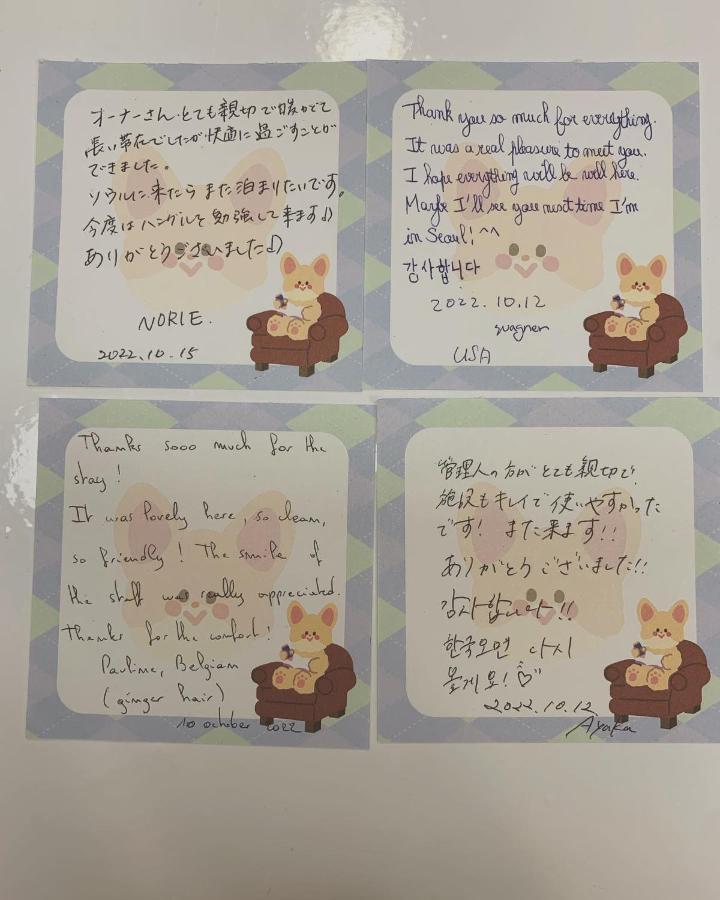 オーナーさん、とても親切で暖かくて
長い滞在でしたが快適に過ごすことが
できました。
ソウルに来たらまた泊まりたいです。
今度はハングルを勉強して来ます♪
ありがとうございました♪
NORIE.
2022.10.15
Thank you so much for everything.
It was a real pleasure to meet you.
I hope everything will be well here.
Maybe I'll see you next time I'm
in Seoul! ^^
감사합니다
2022.10.12
wagner
USA
Thanks sooo much for the
stay!
It was lovely here, so clean,
so friendly! The smile of
the staff was really appreciated.
Thanks for the comfort!
Pauline, Belgian
(ginger hair)
10 october 2022
管理人の方がとても親切で、
施設もキレイで使いやすかった
です! また来ます!!
ありがとうございました!!
감사합니다!!
한국오면 다시
올게요!♡
2022.10.12
Ayaka